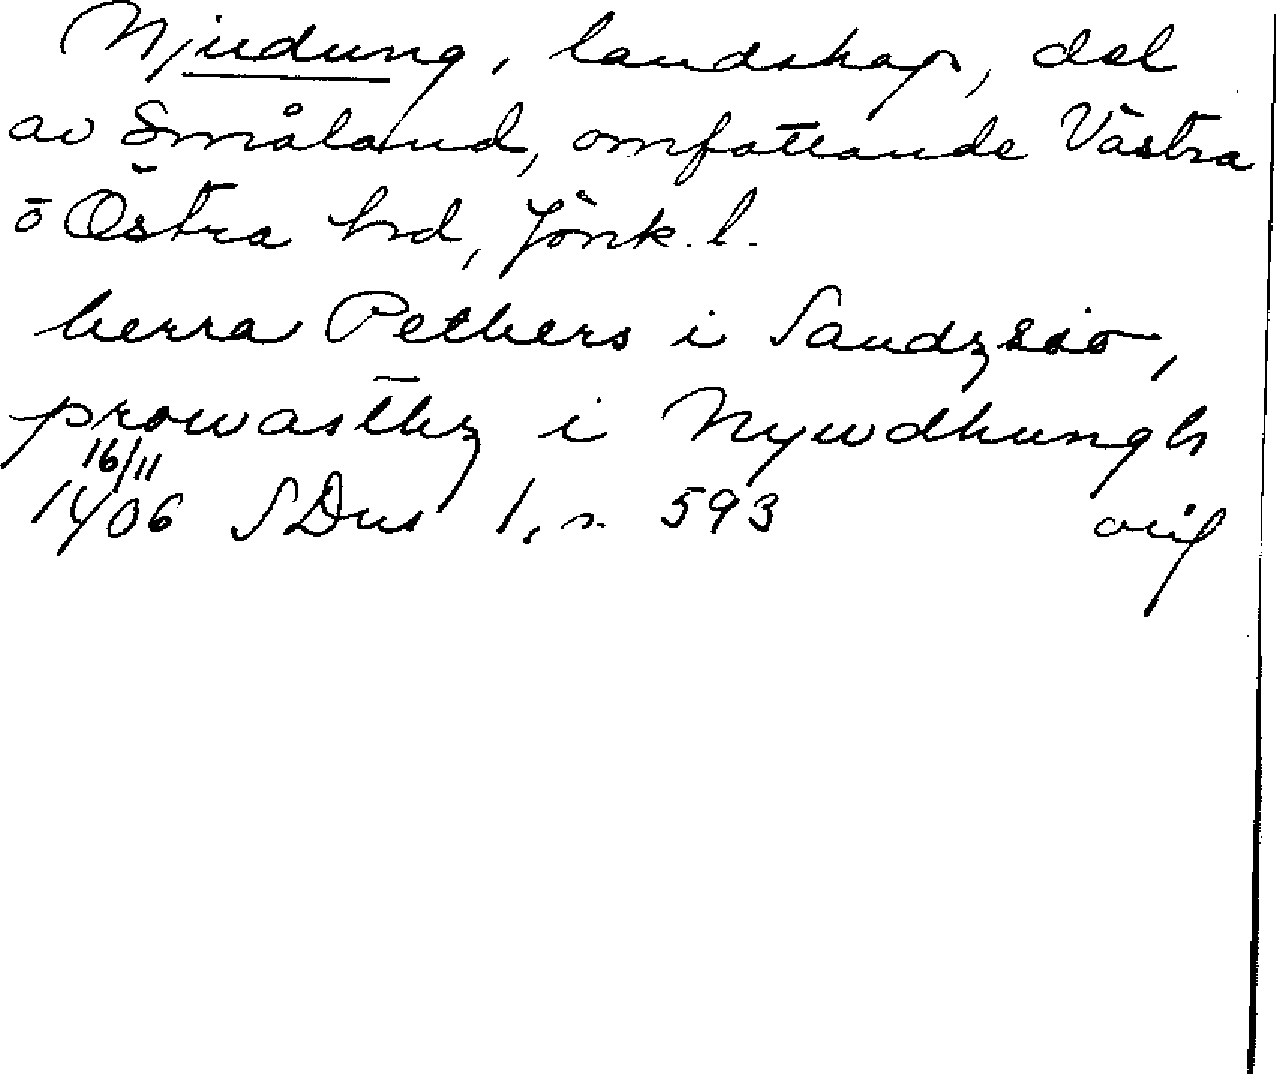 Njudung, landskap, del
av Småland, omfattande Västra
o Östra hd, Jönk. l.
herra Pethers i Sandzsiö,
prowasthz i Nywdhungh
16/11
1406 SDns 1, s. 593 orig